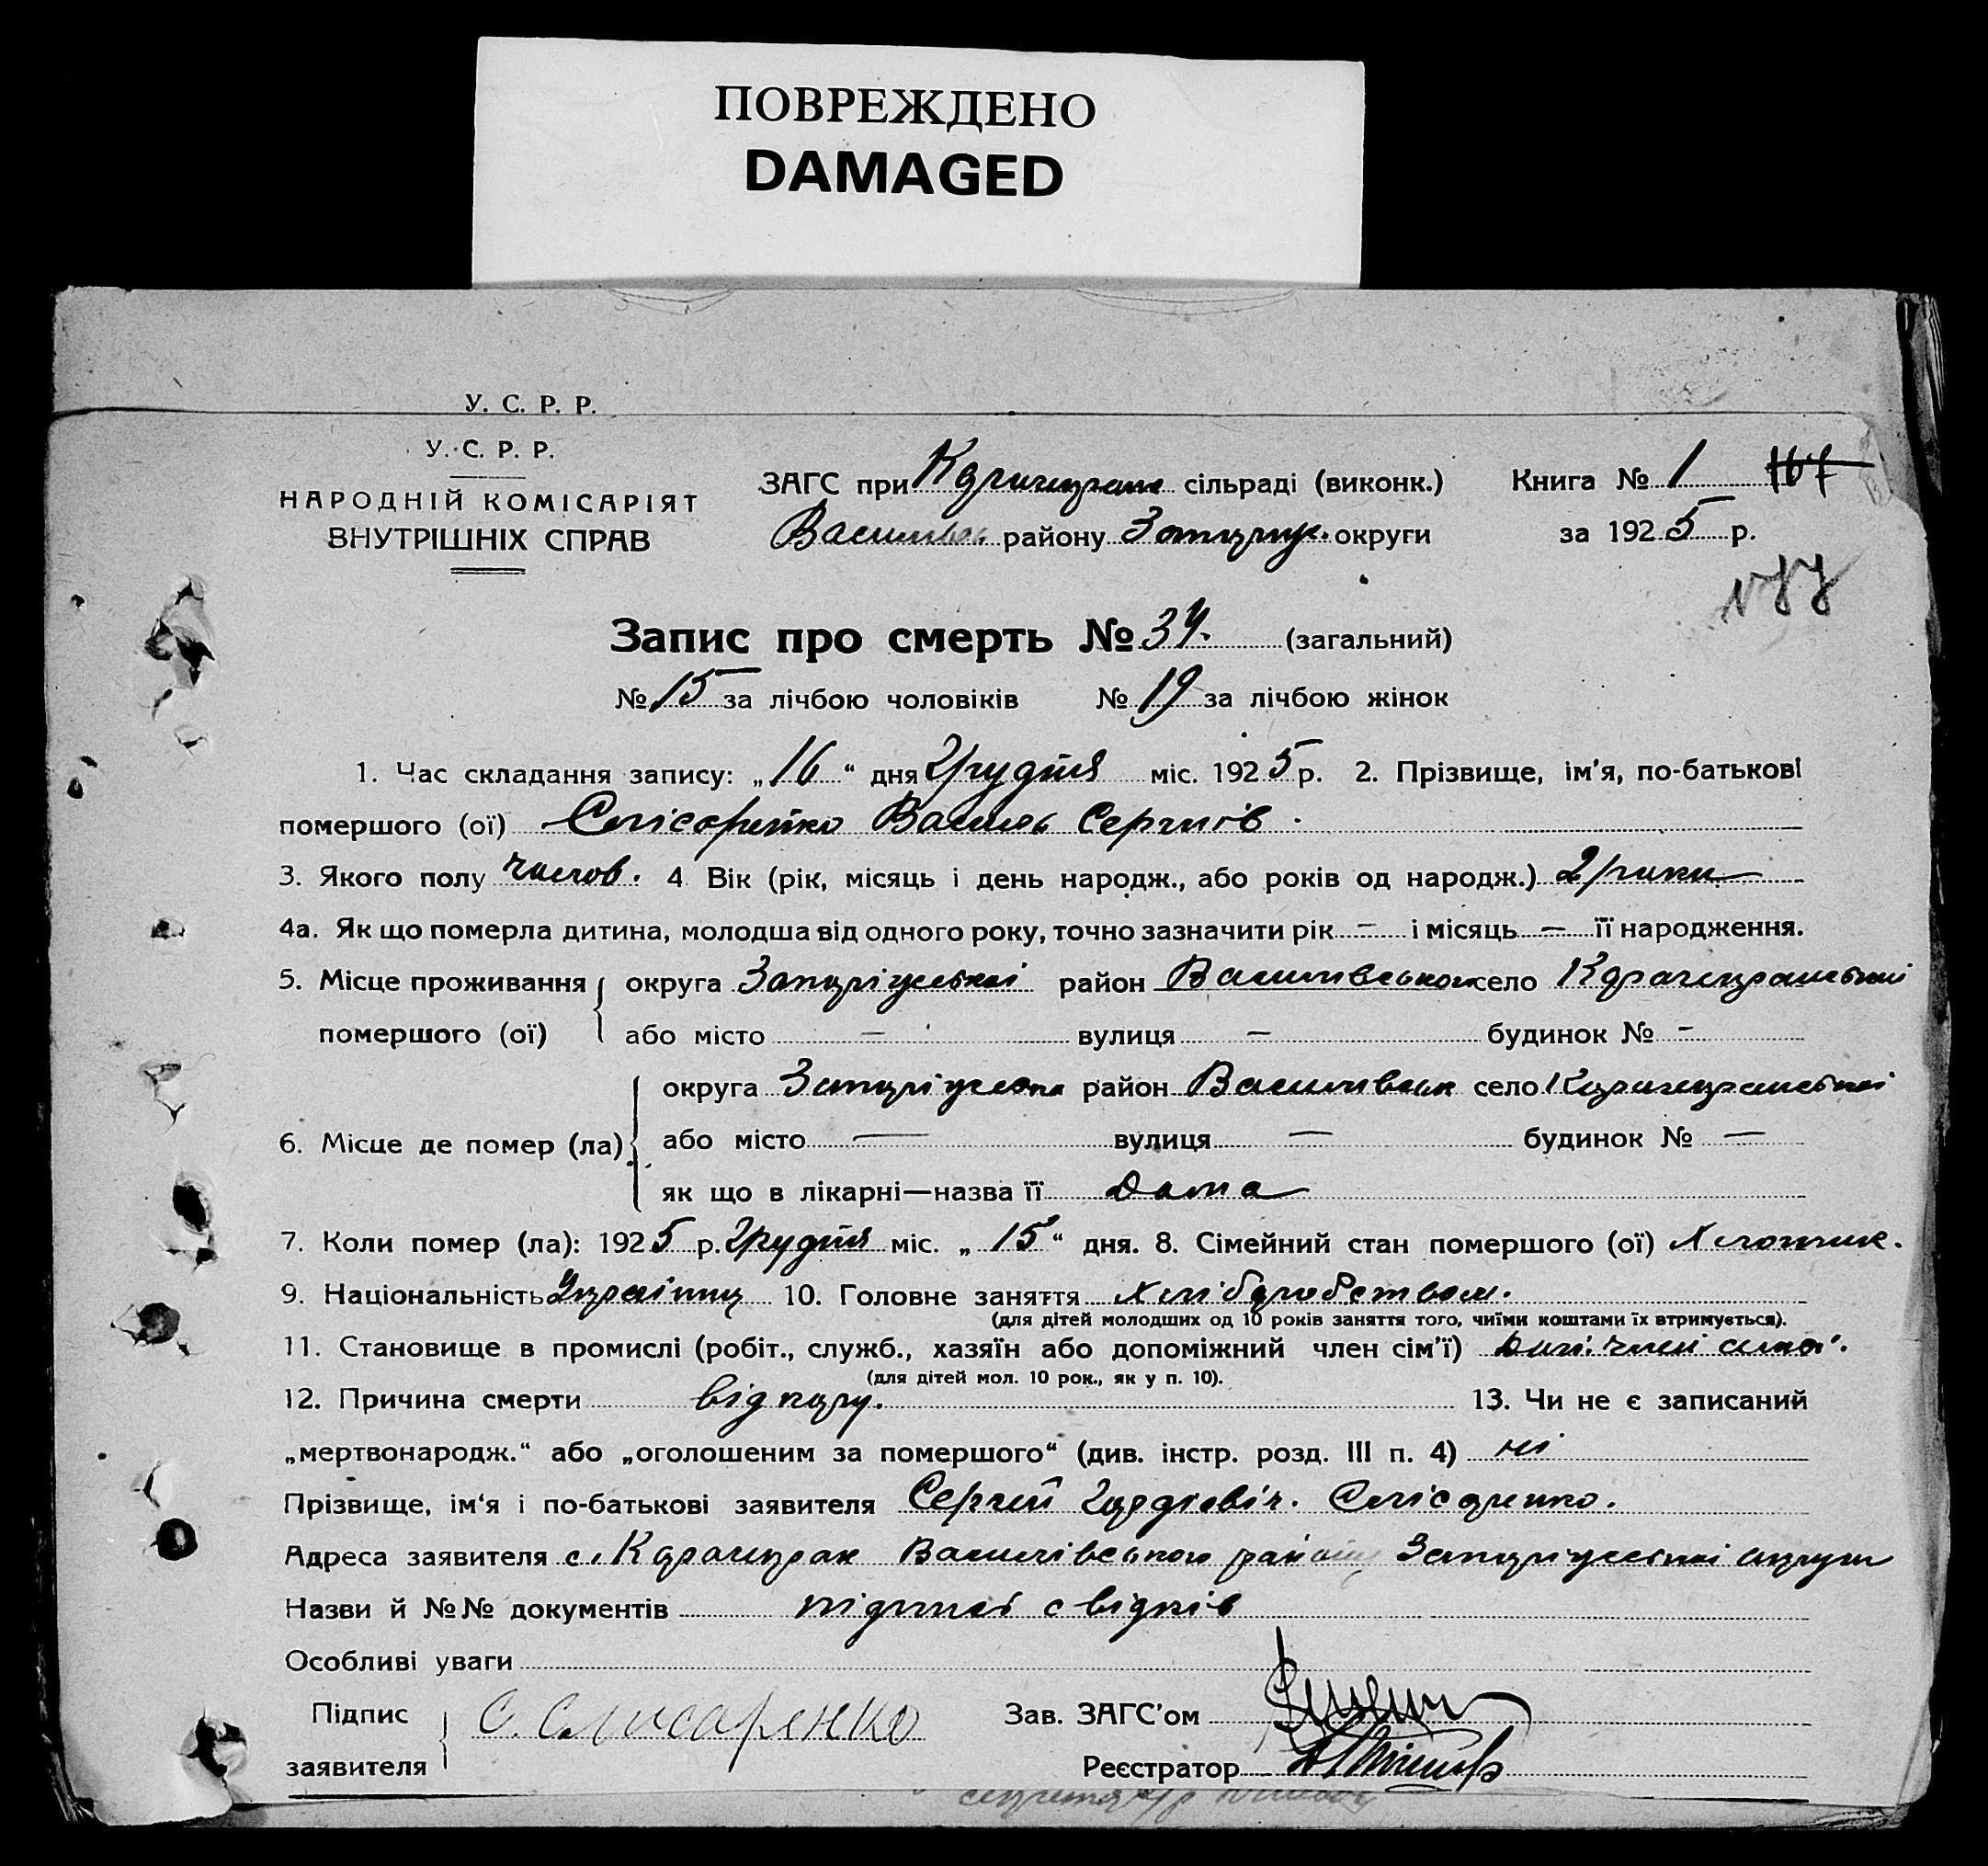 ПОВРЕЖДЕНО
DAMAGED
У. С. Р. Р.
У. С. Р. Р.
НАРОДНІЙ КОМІСАРІЯТ
ВНУТРІШНІХ СПРАВ
ЗАГС при сільраді (виконк.) Книга № 1 107
Васильев. району Запоріж. округи за 1925 р.
177
Запис про смерть № 34. (загальний)
№ 15 за лічбою чоловіків № 19 за лічбою жінок
1. Час складання запису: „16“ дня Грудня міс. 1925 р. 2. Прізвище, ім'я, по-батькові
помершого (ої) Слісаренко Василь Сергиїв.
3. Якого полу чолов. 4 Вік (рік, місяць і день народж., або років од народж.) 2 роки
4а. Як що померла дитина, молодша від одного року, точно зазначити рік — і місяць — її народження.
5. Місце проживання округа Запоріжської район Василівського село Карачекракської
помершого (ої) або місто — вулиця — будинок № -
округа Запоріжська район Василівськ село Карачекракської
6. Місце де помер (ла) або місто — вулиця — будинок № —
як що в лікарні—назва її Дома
7. Коли помер (ла): 1925 р. Грудня міс. „15“ дня. 8. Сімейний стан помершого (ої) Хлопчик.
9. Національність Україниц 10. Головне заняття Хліборобством.
(для дітей молодших од 10 років заняття того, чиїми коштами їх втримується).
11. Становище в промислі (робіт., служб., хазяїн або допоміжний член сім'ї) член сімї.
(для дітей мол. 10 рок., як у п. 10).
12. Причина смерти від кору. 13. Чи не є записаний
„мертвонародж.“ або „оголошеним за помершого“ (див. інстр. розд. III п. 4) ні
Прізвище, ім'я і по-батькові заявителя Сергий Слісаренко.
Адреса заявителя с. Карачекрак Василівського району Запоріжської округи
Назви й №№ документів свідків
Особливі уваги
Підпис С. Слисаренко Зав. ЗАГС'ом
заявителя Реєстратор